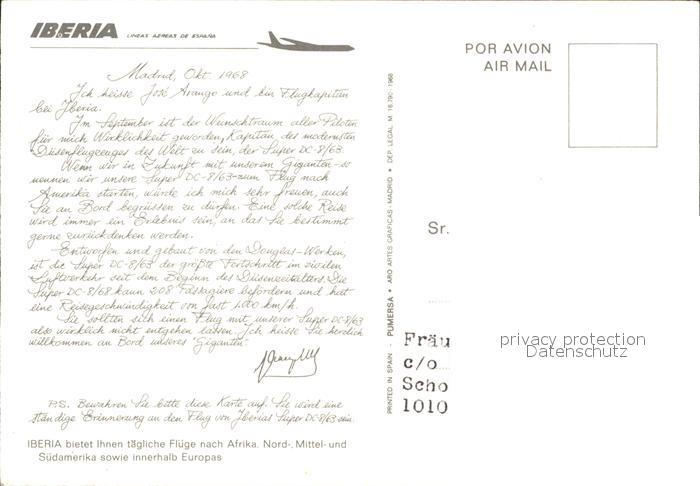 IBERIA LINEAS AEREAS DE ESPAÑA
Madrid, Okt. 1968
Ich heisse José Arango und bin Flugkapitän
bei Iberia.
Im September ist der Wunschtraum aller Piloten
für mich Wirklichkeit geworden, Kapitän des modernsten
Düsenflugzeuges der Welt zu sein, der Super DC-8/63.
Wenn wir in Zukunft mit unserem Giganten-so
nennen wir unsere Super DC-8/63-zum Flug nach
Amerika starten, würde ich mich sehr freuen, auch
Sie an Bord begrüssen zu dürfen. Eine solche Reise
wird immer ein Erlebnis sein, an das Sie bestimmt
gerne zurückdenken werden.
Entworfen und gebaut von den Douglas-Werken,
ist die Super DC-8/63 der größte Fortschritt im zivilen
Luftverkehr seit dem Beginn des Düsenzeitalters. Die
Super DC-8/68 kann 208 Passagiere befördern und hat
eine Reisegeschwindigkeit von fast 1.000 km/h.
Sie sollten sich einen Flug mit unserer Super DC-8/63
also wirklich nicht entgehen lassen. Ich heisse Sie herzlich
willkommen an Bord unseres "Giganten".
P.S. Bewahren Sie bitte diese Karte auf. Sie wird eine
ständige Erinnerung an den Flug von Iberias Super DC-8/63 sein.
IBERIA bietet Ihnen tägliche Flüge nach Afrika. Nord-, Mittel- und
Südamerika sowie innerhalb Europas
PRINTED IN SPAIN - PUMERSA • ARO ARTES GRAFICAS - MADRID • DEP. LEGAL, M. 18.790 - 1968
POR AVION
AIR MAIL
Sr.
Fräu
c/o
Scho
1010
privacy protection
Datenschutz